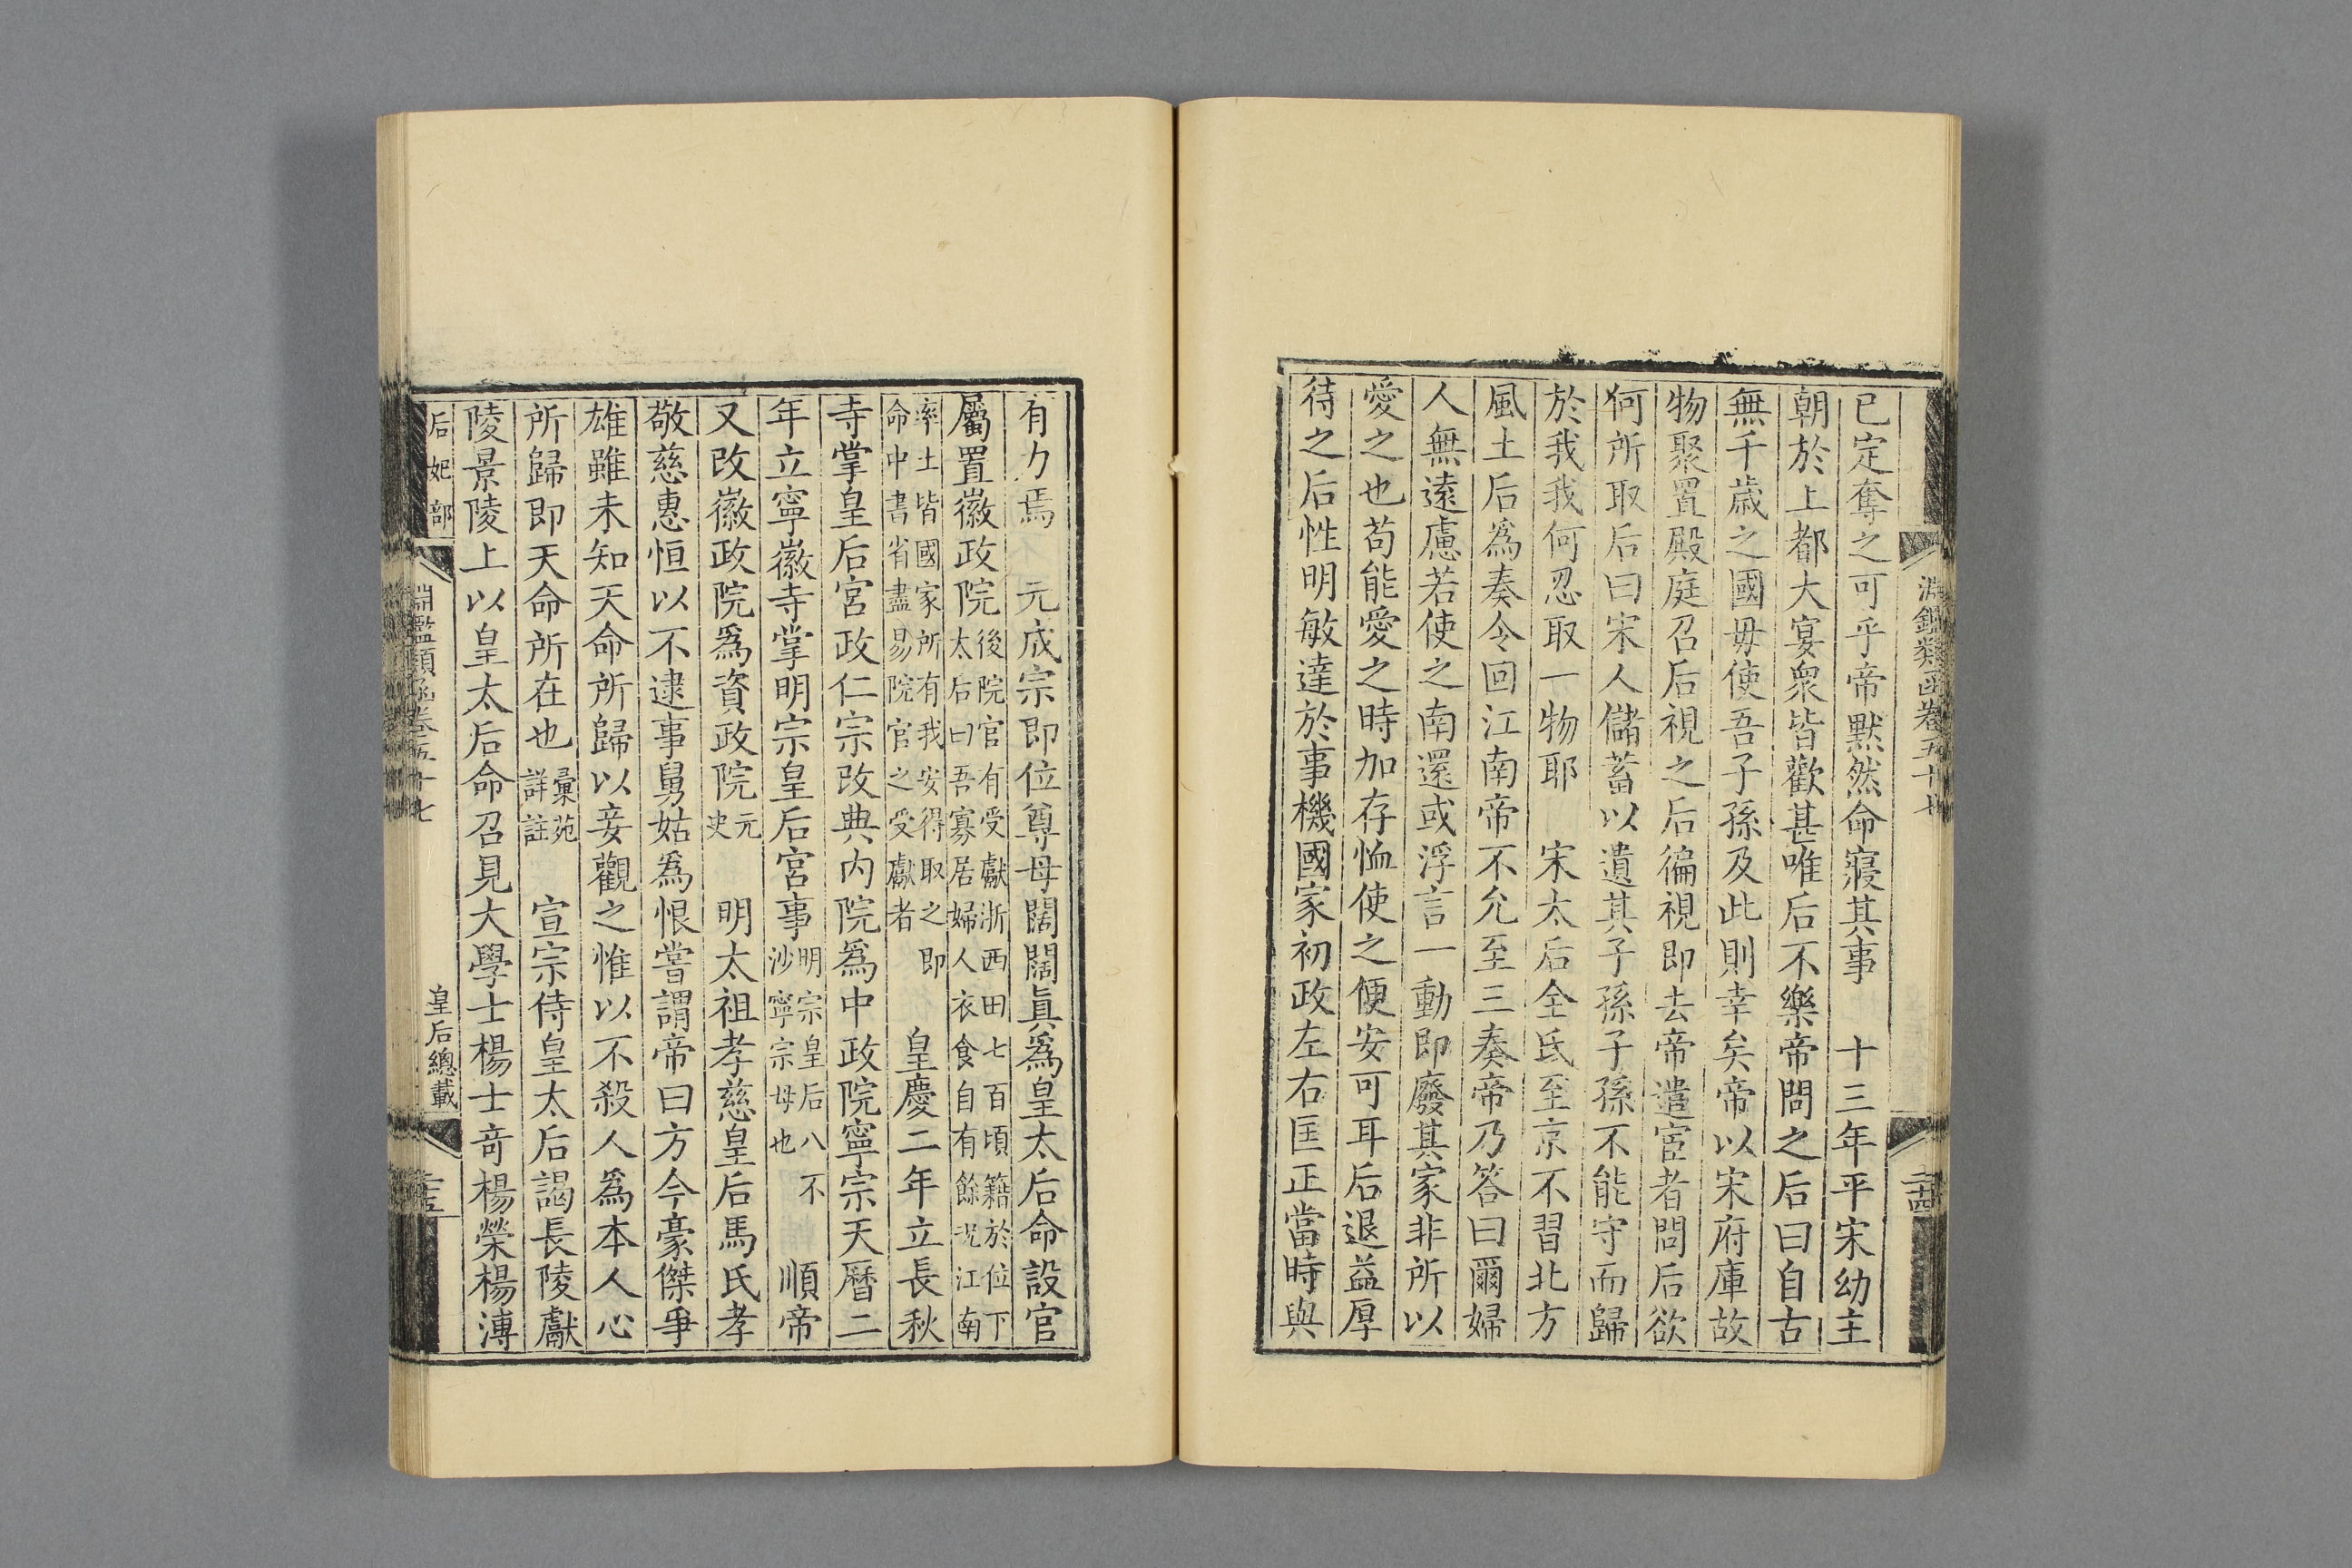 淵鑑類函卷五十七
二十四
已定奪之可乎帝默然命寢其事　十三年平宋幼主
朝於上都大宴衆皆歡甚唯后不樂帝問之后曰自古
無千歲之國毋使吾子孫及此則幸矣帝以宋府庫故
物聚置殿庭召后視之后徧視即去帝遣宦者問后欲
何所取后曰宋人儲蓄以遺其子孫子孫不能守而歸
於我我何忍取一物耶　宋太后全氏至京不習北方
風土后爲奏令回江南帝不允至三奏帝乃答曰爾婦
人無遠慮若使之南還或浮言一動即廢其家非所以
愛之也苟能愛之時加存恤使之便安可耳后退益厚
待之后性明敏達於事機國家初政左右匡正當時與
有力焉　元成宗即位尊母闊闊眞爲皇太后命設官
屬置徽政院後院官有受獻浙西田七百頃籍於位下太后曰吾寡居婦人衣食自有餘况江南
率土皆國家所有我安得取之即命中書省盡易院官之受獻者　皇慶二年立長秋
寺掌皇后宮政仁宗改典内院爲中政院寧宗天曆二
年立寧徽寺掌明宗皇后宮事明宗皇后八不沙寧宗母也　順帝
又改徽政院爲資政院元史　明太祖孝慈皇后馬氏孝
敬慈惠恒以不逮事舅姑爲恨嘗謂帝曰方今豪傑爭
雄雖未知天命所歸以妾觀之惟以不殺人爲本人心
所歸即天命所在也彙苑詳註　宣宗侍皇太后謁長陵獻
陵景陵上以皇太后命召見大學士楊士奇楊榮楊溥
后妃部
淵鑑類函卷五十七
皇后總載
二十五